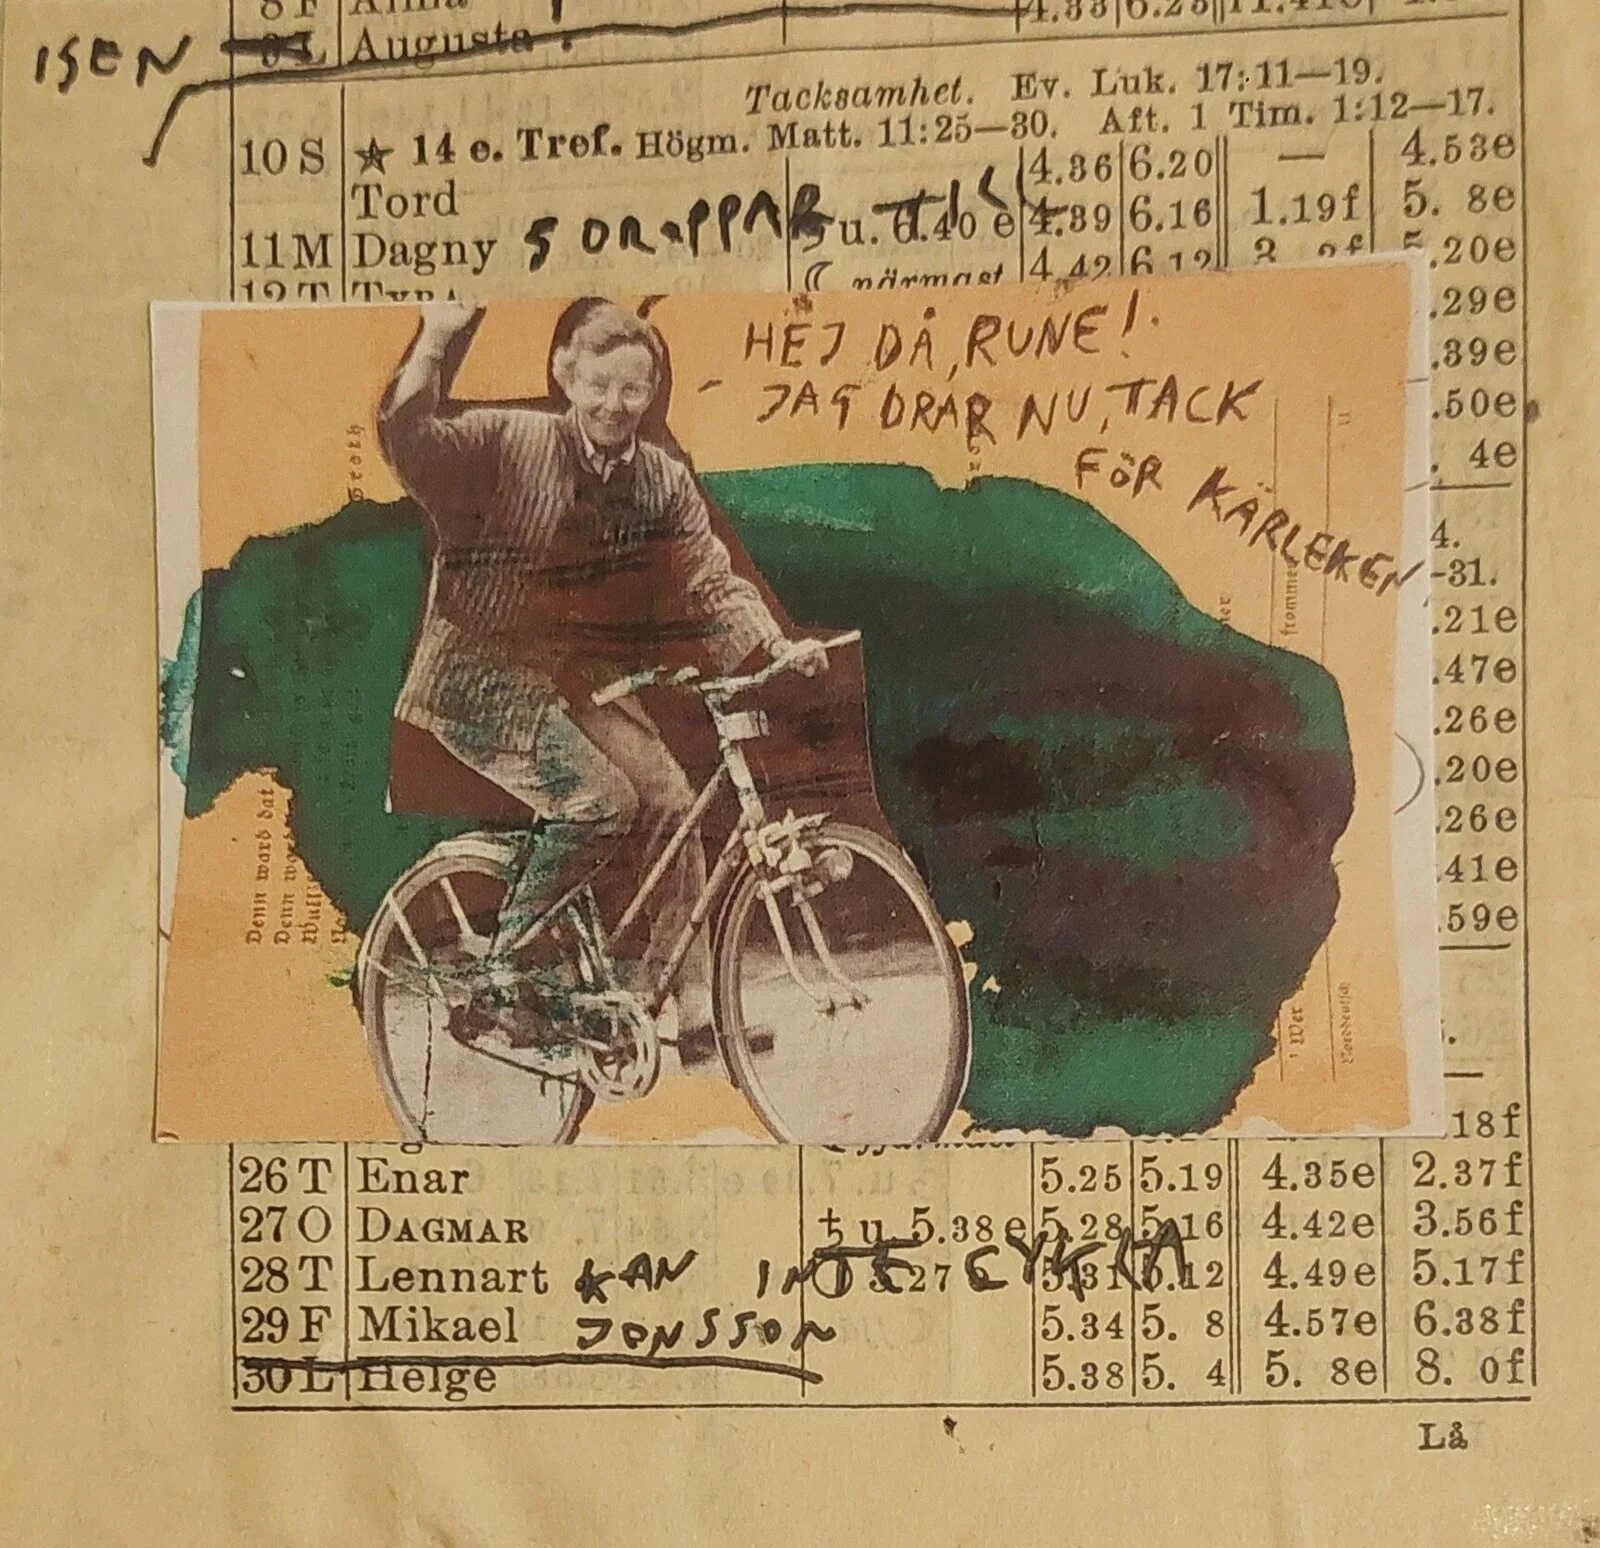 ISEN
Augusta.
Tacksamhet. Ev. Luk. 17:11—19.
10 S ★ 14 e. Tref. Högm. Matt. 11:25—30. Aft. 1 Tim. 1:12—17.
Tord 4.36 6.20 — 4.53e
11 M Dagny u. 6.40 e 4.39 6.16 1.19f 5. 8e
närmast 4.42 6.12 .20e
.29e
HEJ DÅ, RUNE!
.39e
- JAG DRAR NU, TACK
.50e
FÖR KÄRLEKEN
. 4e
4.
-31.
frommen
.21e
.47e
.26e
.20e
Denn ward dat
.26e
.41e
.59e
Wer
Norddeutsch
.18f
26 T Enar 5.25 5.19 4.35e 2.37f
27 O DAGMAR ♄ u. 5.38 e 5.28 5.16 4.42e 3.56f
28 T Lennart KAN INTE CYKLA 4.49e 5.17f
29 F Mikael JONSSON 5.34 5. 8 4.57e 6.38f
30 L Helge 5.38 5. 4 5. 8e 8. 0f
Lå